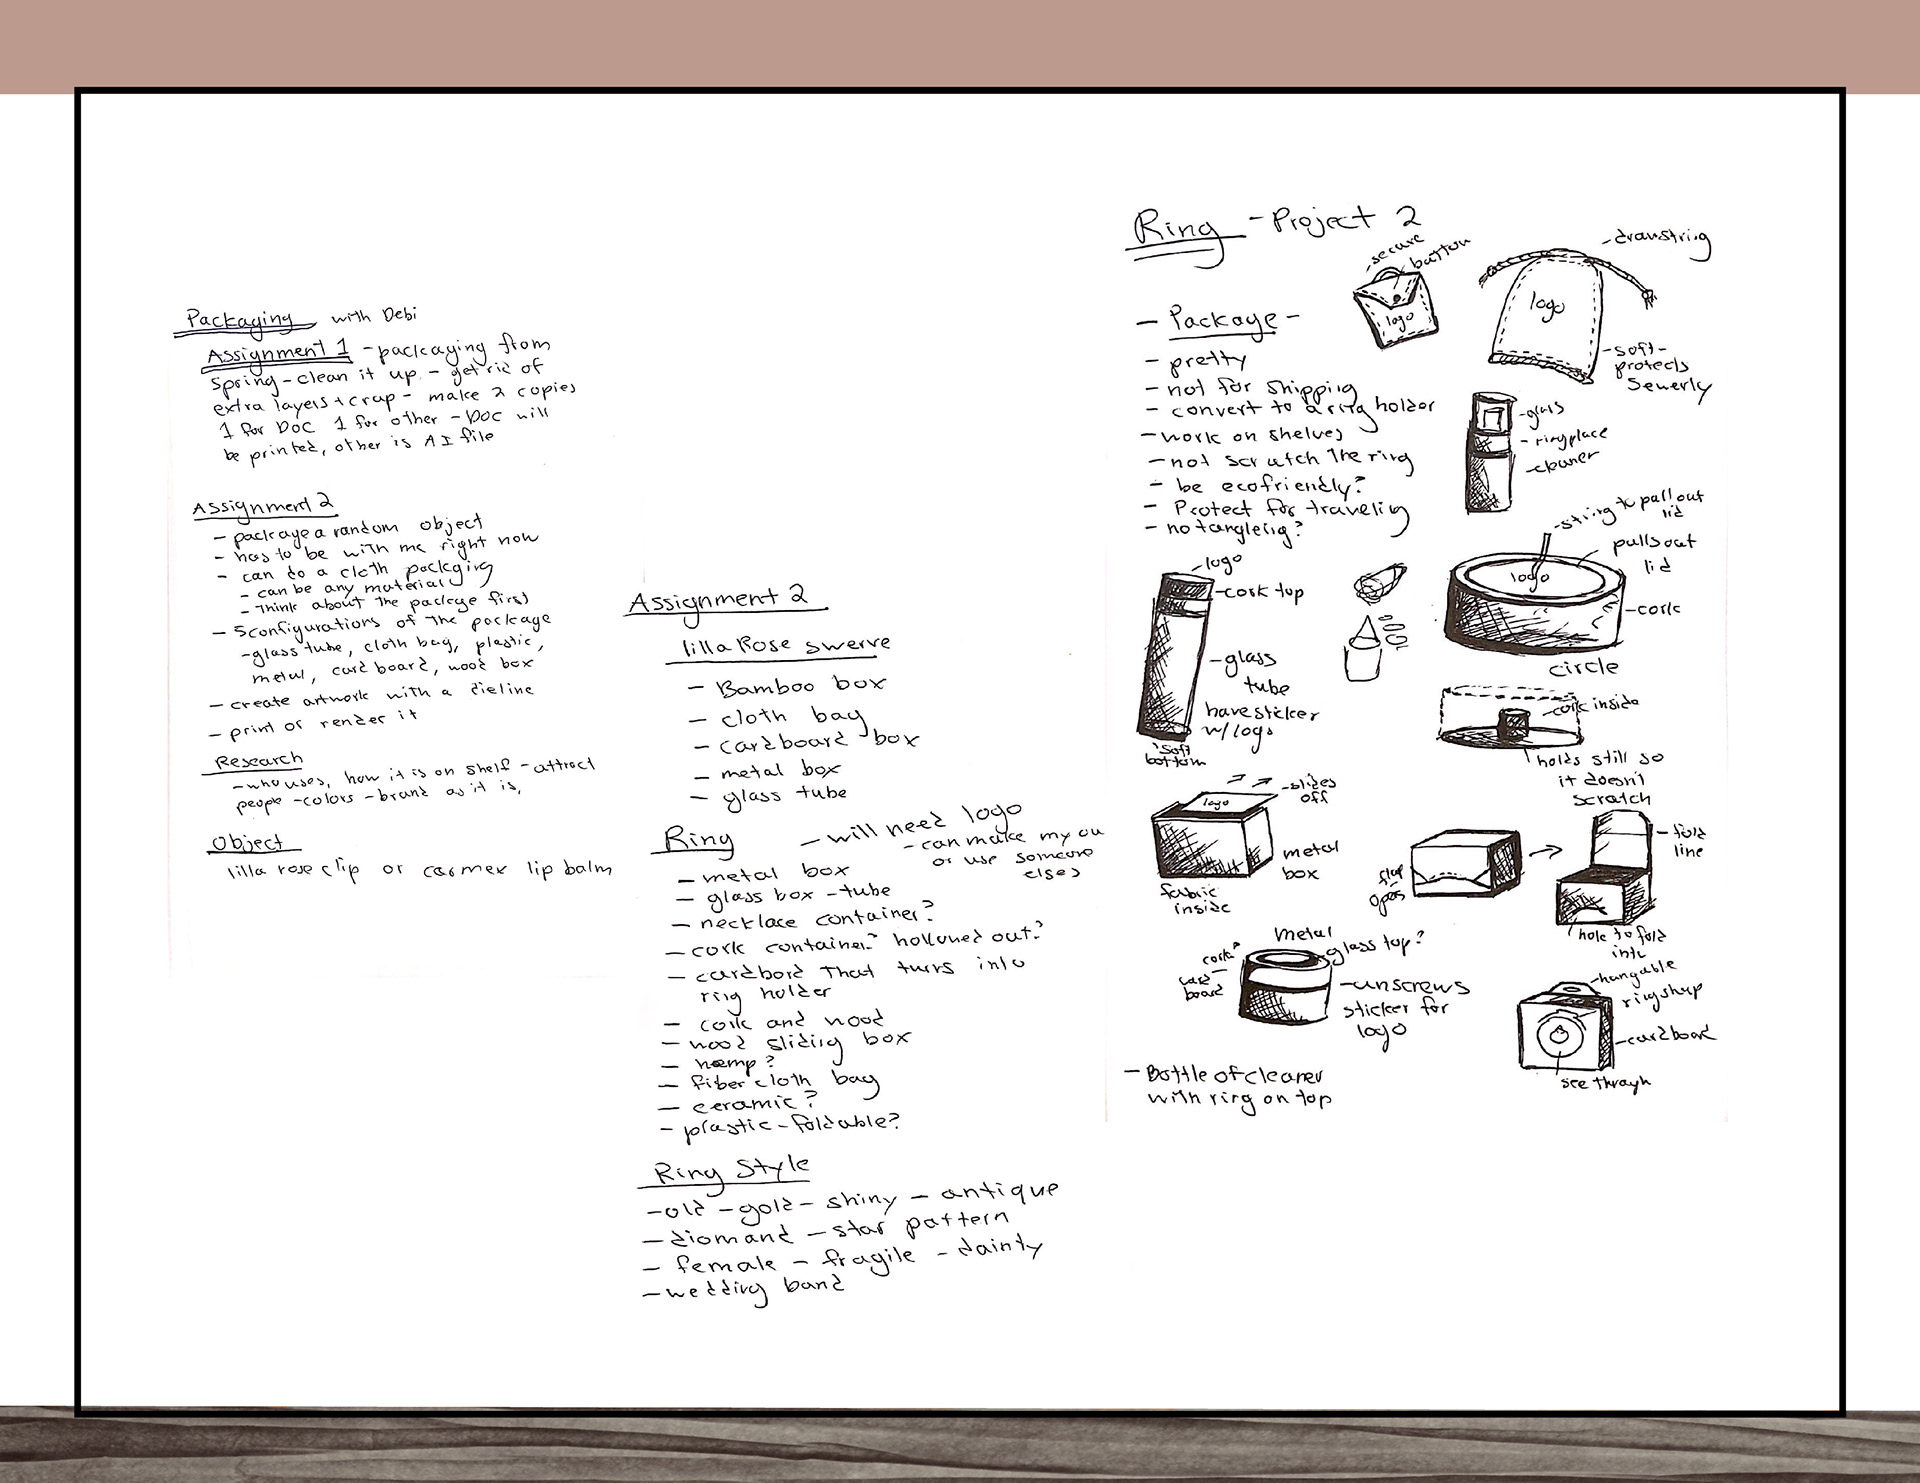 Packaging with Debi
Assignment 1 - packaging from
spring - clean it up - get rid of
extra layers + crap - make 2 copies
1 for DOC 1 for other - DOC will
be printed, other is AI file
Assignment 2
- package a random object
- has to be with me right now
- can do a cloth packging
- can be any material
- think about the package first
- 5 configurations of the package
- glass tube, cloth bag, plastic,
metal, card board, wood box
- create artwork with a dieline
- print or render it
Research
- who uses, how it is on shelf - attract
people - colors - brand as it is,
Object
lilla rose clip or carmex lip balm
Assignment 2
lilla Rose swerve
- Bamboo box
- cloth bag
- cardboard box
- metal box
- glass tube
Ring
- will need logo
- can make my ow
or use someone
elses
- metal box
- glass box - tube
- necklace container?
- cork container? hollowed out?
- cardbord that turns into
ring holder
- cork and wood
- wood sliding box
- hemp?
- fiber cloth bag
- ceramic?
- plastic - foldable?
Ring Style
- old - gold - shiny - antique
- diomand - star pattern
- female - fragile - dainty
- wedding band
Ring - Project 2
- secure
button
logo
- drawstring
logo
- soft -
protects
Sewerly
- Package -
- pretty
- not for shipping
- convert to a ring holder
- work on shelves
- not scratch the ring
- be ecofriendly?
- Protect for traveling
- no tangleing?
- glass
- ring place
- cleaner
- string to pull out
lid
pulls out
lid
logo
- cork
circle
- logo
- cork top
- glass
tube
have sticker
w/ logo
soft
bottom
- cork inside
holds still so
it doesn't
scratch
- slides
off
logo
metal
box
fabric
inside
flap
opens
- fold
line
hole to fold
into
metal
cork?
card
board
glass top?
- unscrews
sticker for
logo
- hangable
ring shap
- cardboard
see through
- Bottle of cleaner
with ring on top